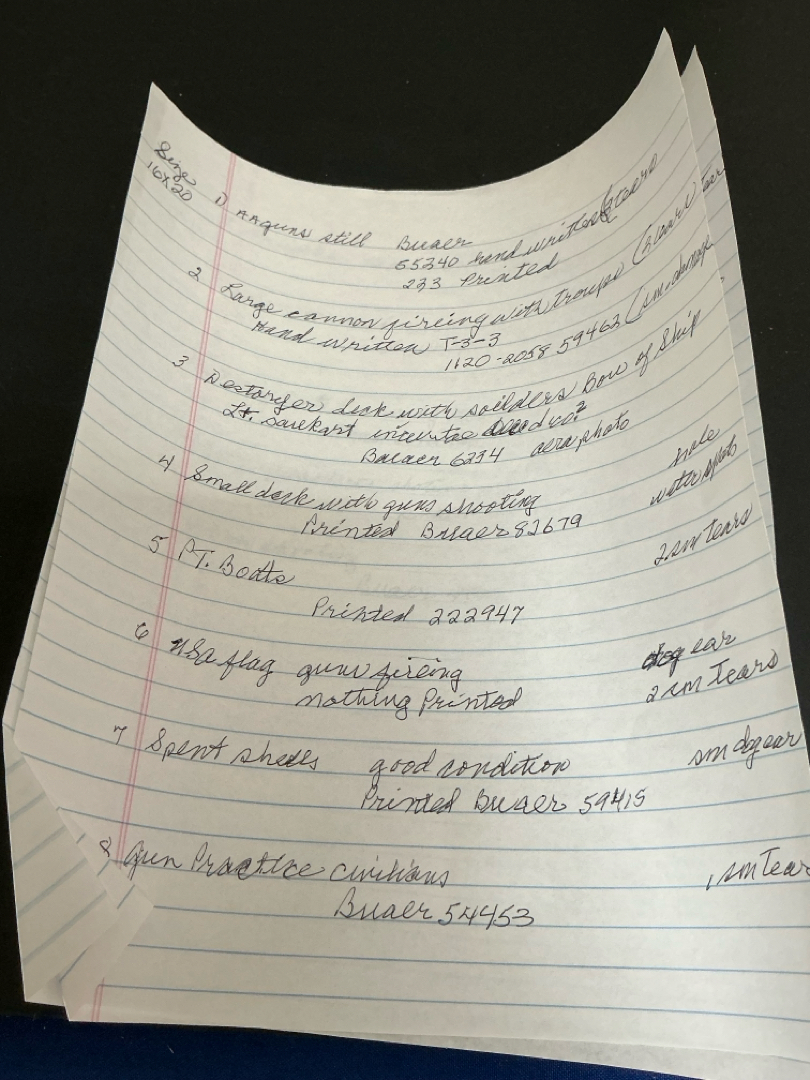 Size
16x20
1) AA guns still Buaer
55340 hand written tears
233 Printed
2 Large cannon fireing with troups (2 ear tear
Hand written T-3-3
1120-2058 59463 (sm. damage
3 Destoryer deck with soilders Bow of Ship
Lt.
Buaer 6234 photo
hole
4 Small deck with guns shooting water spots
Printed Buaer 82679
5 P.T. Boats 2 sm Tears
Printed 222947
6 USA flag guns fireing dog ear
nothing Printed 2 sm Tears
7 Spent shells good condition sm dog ear
Printed Buaer 59415
8 Gun Practice civilians 1 sm Tear
Buaer 54453